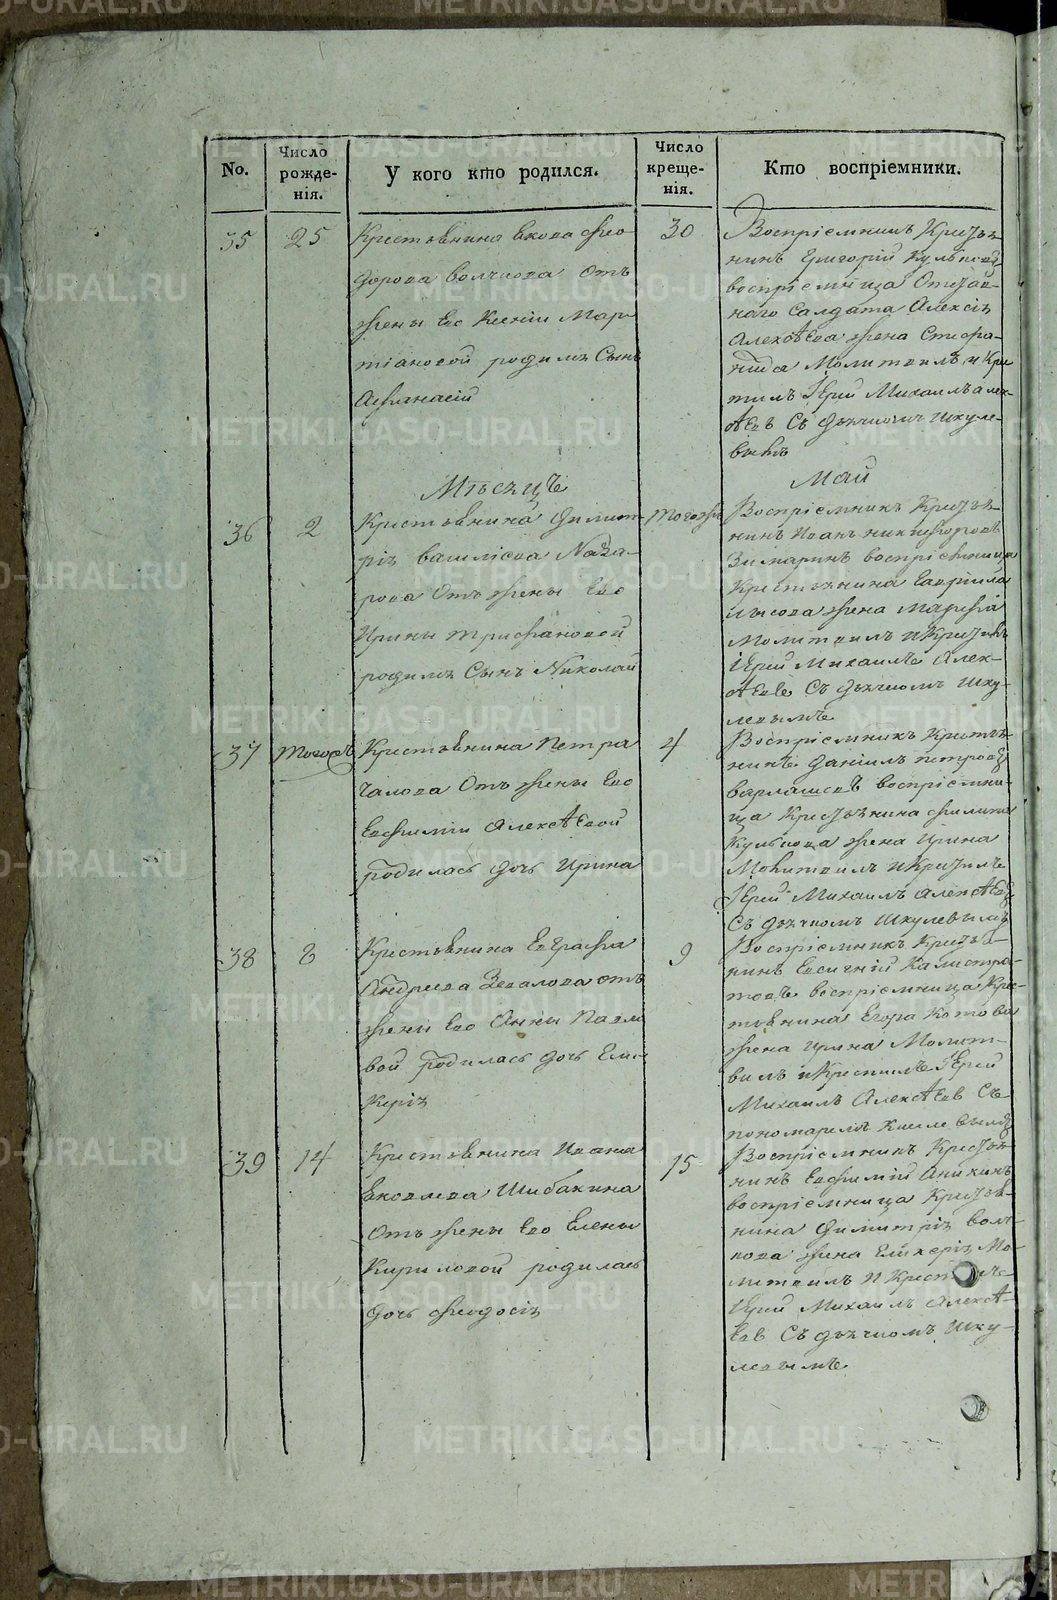 No.
Число рожде-нія.
У кого кто родился.
Число креще-нія.
Кто воспріемники.
35
25
Крестьянина Якова Фео-
дорова Волчкова Отъ
жены Его Ксеніи Мар-
тіановой родилъ Сынъ
Афанасій
30
Воспріемникъ Крестья-
нинъ Григорій Кульковъ
воспріемница Отстав-
наго Салдата Алексія
Алексѣева жена Стефа-
нида Молитвилъ и Кре
тилъ Іерей Михаилъ алек-
сѣевъ Съ дьячкомъ Шкуле-
вымъ
Мѣсяцъ
Май
36
2
Крестьянина Димит-
рія
Наза-
рова Отъ жены Его
Ирины Трифановой
родилъ Сынъ Николай
Тогожъ
Воспріемникъ Крестья-
нинъ Иванъ Никифоровъ
Зимаринъ воспріемница
Крестьянина Гавріила
Лысова жена Марфа
Молитвилъ и Крестилъ
Іерей Михаилъ Алек-
сѣевъ Съ дьячкомъ Шку-
левымъ
37
Тогожъ
Крестьянина Петра
Чалова Отъ жены Его
Евфиміи Алексѣевой
родилась дочь Ирина
4
Воспріемникъ Крестья-
нинъ Даніилъ Петровъ
воспріемни-
ца Крестьянина Филипа
Кулькова жена Ирина
Молитвилъ и Крестилъ
Іерей Михаилъ Алексѣевъ
Съ дьячкомъ Шкулевымъ
38
8
Крестьянина Евграфа
Андреева Завалова отъ
жены Его Анны Павло
вой родилась дочь Гли-
керія
9
Воспріемникъ Крестья-
нинъ Евсигній Калистра-
товъ воспріемница Крес-
тьянина Егора Котова
жена Ирина Молит-
вилъ и Крестилъ Іерей
Михаилъ Алексѣевъ Съ
пономаремъ
39
14
Крестьянина Ивана
Яковлева Шибакина
Отъ жены Его Елены
Кириловой родилась
дочь Феодосія
15
Воспріемникъ Крестья-
нинъ Евфимій Аникинъ
воспріемница Крестья-
нина Димитрія Волч-
кова жена Гликерія Мо-
литвилъ и Крестилъ
Іерей Михаилъ Алексѣ-
евъ Съ дьячкомъ Шку-
левымъ
METRIKI.GASO-URAL.RU